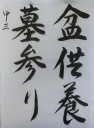 盆供養
墓参り
中三